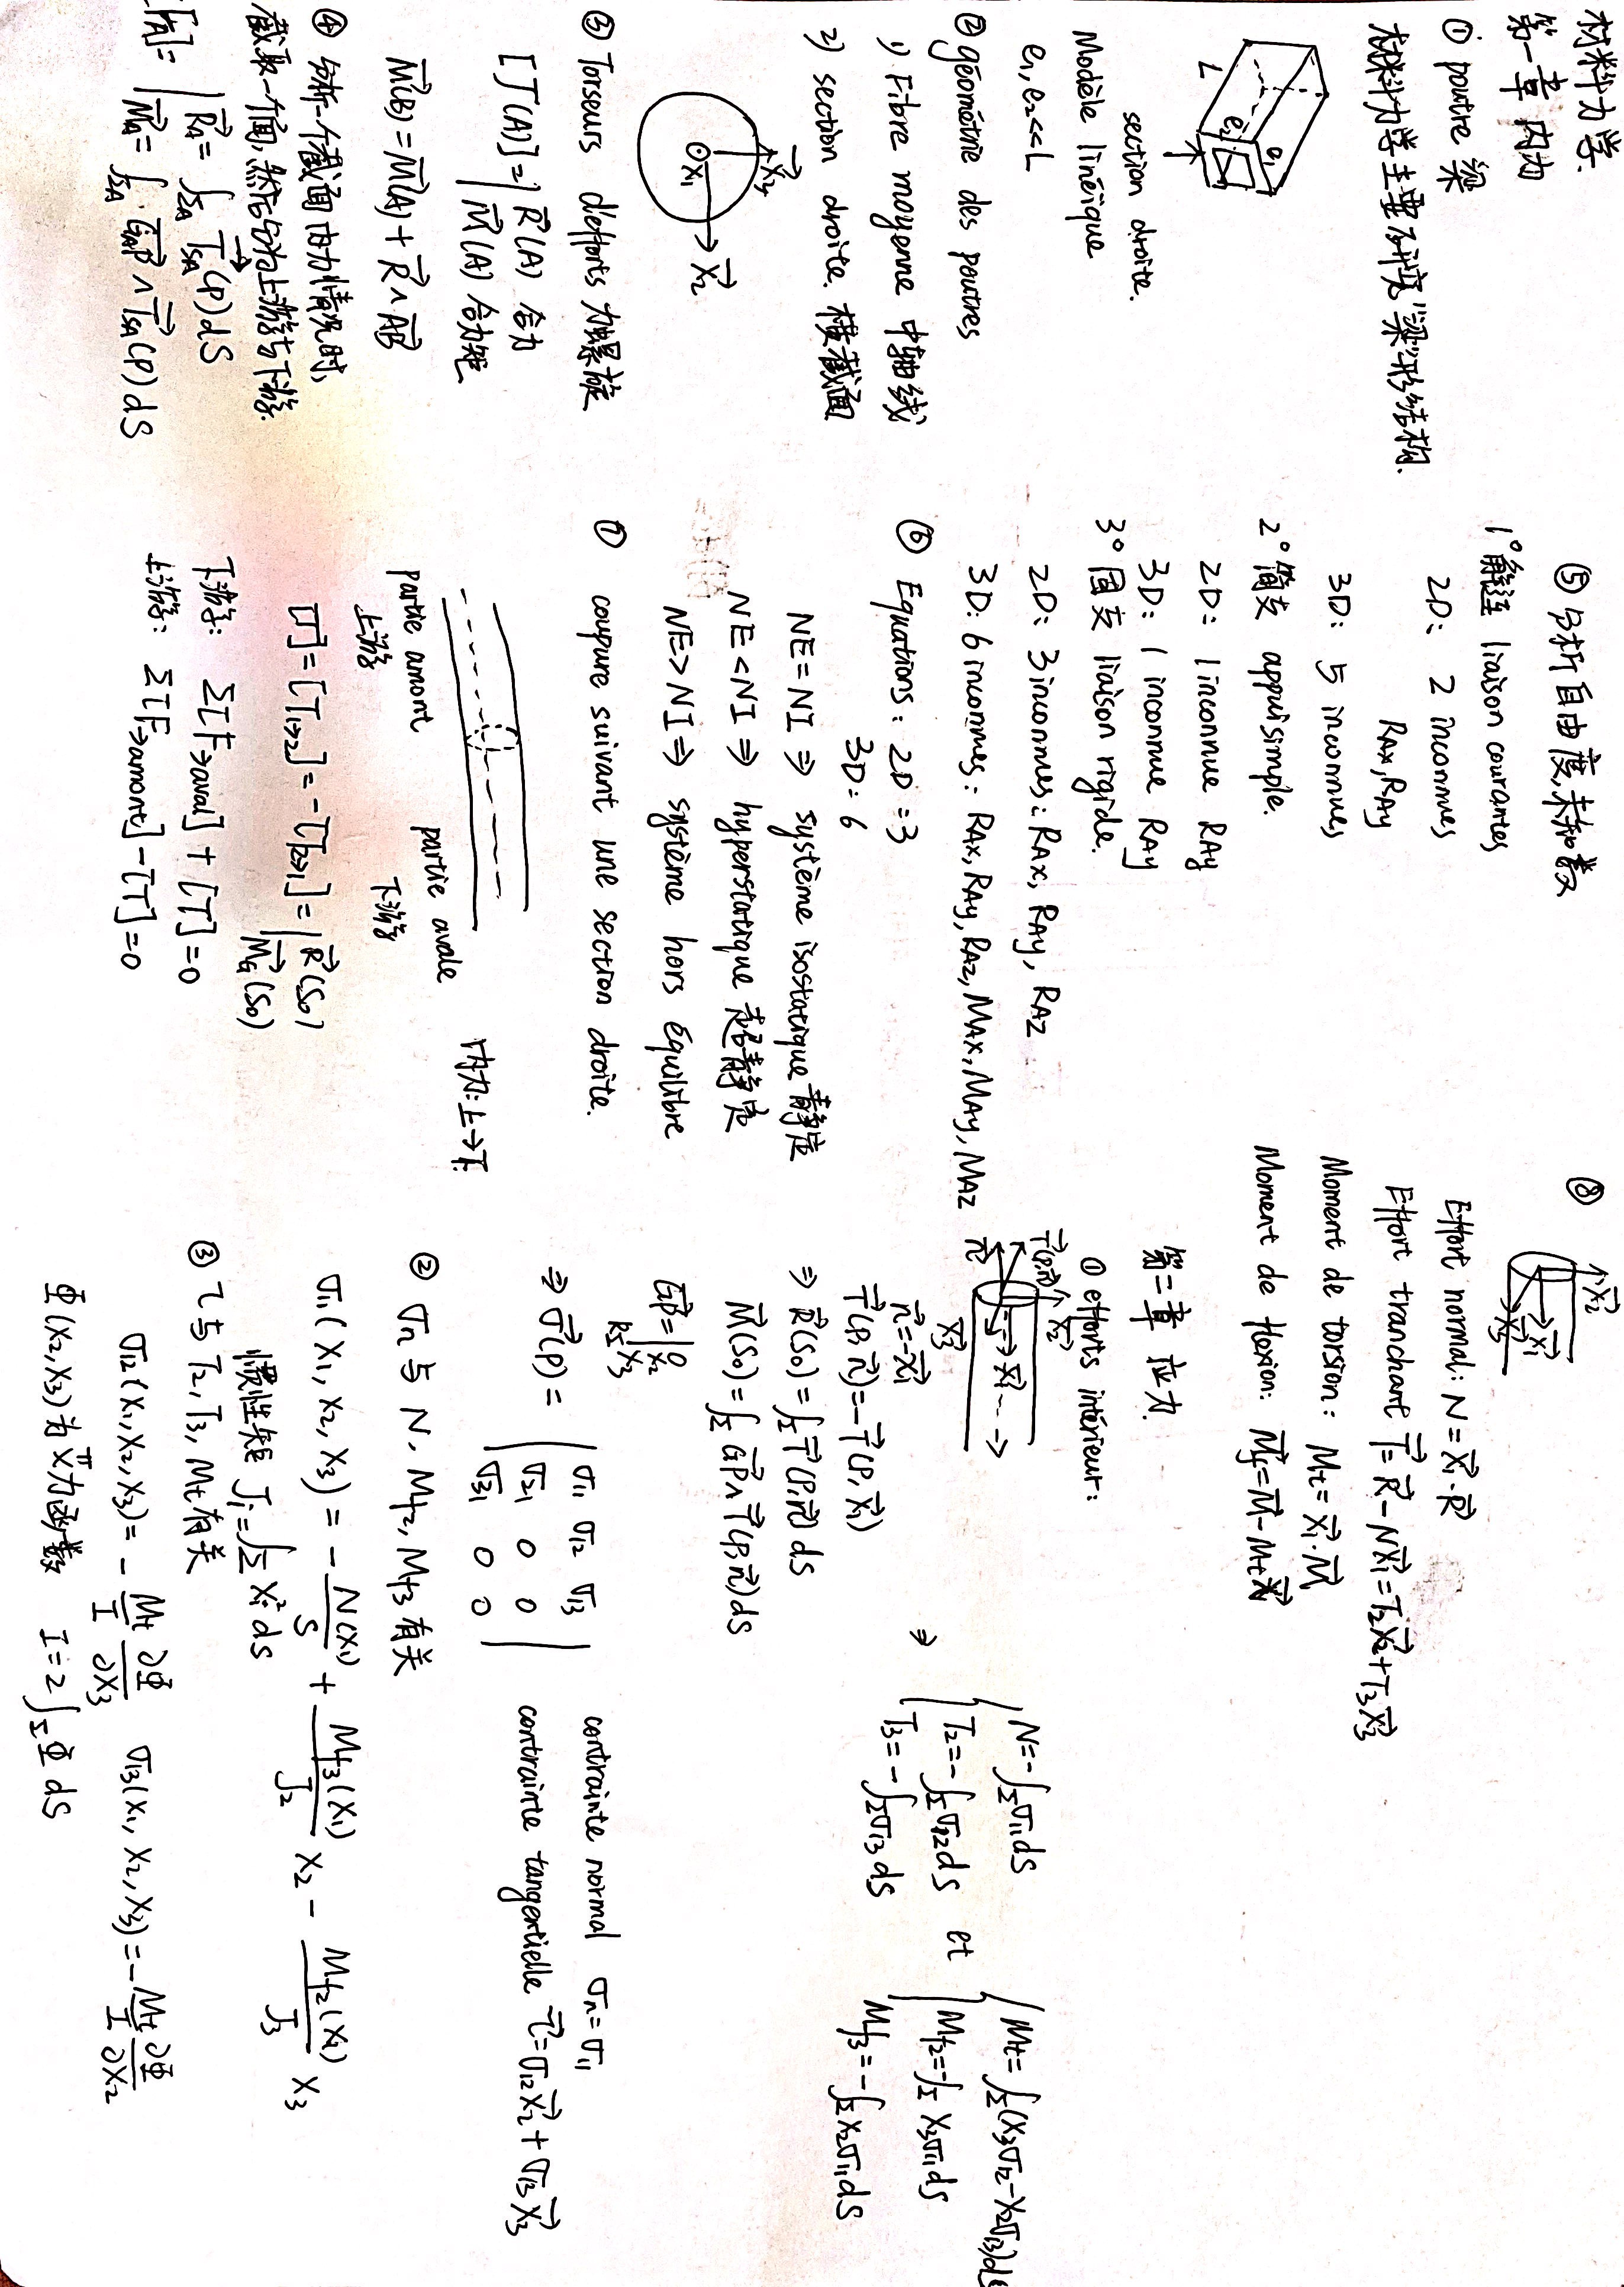 材料力学.
第一章 内力
① poutre 梁
材料力学主要研究"梁"形结构.
e₁
e₂
L
section droite.
Modèle linéique
e₁, e₂<<L
② géométrie des poutres
1) Fibre moyenne 中轴线
2) section droite. 横截面
X₃
X₁
X₂
③ Torseurs d'efforts 力螺旋
[T(A)]=| R(A) 合力
M(A) 合力矩
M(B) = M(A) + R ∧ AB
④ 分析一个截面内力情况时,
截取一个面,然后分为上游与下游.
[F_A]= | R_A = ∫_ΣA T_SA(P) dS
M_A = ∫_ΣA G_AP ∧ T_SA(P) dS
⑤ 分析自由度,未知数
1° 解连 liaison courantes
2D: 2 inconnues
RAx, RAy
3D: 5 inconnues
2° 简支 appui simple.
2D: 1 inconnue RAy
3D: 1 inconnue RAy
3° 固支 liaison rigide.
2D: 3 inconnues: RAx, RAy, RAz
3D: 6 inconnues: RAx, RAy, RAz, MAx, MAy, MAz
⑥ Equations: 2D = 3
3D: 6
NE = NI ⇒ système isostatique 静定
NE < NI ⇒ hyperstatique 超静定
NE > NI ⇒ système hors équilibre
⑦ coupure suivant une section droite.
partie amont
上游
partie avale
下游
内力:上→下.
[T] = [T₁→₂] = -[T₂→₁] = | R(S₀)
M_G(S₀)
下游: Σ[F→aval] + [T] = 0
上游: Σ[F→amont] - [T] = 0
⑧
X₂
X₁
X₃
Effort normal: N = X₁·R
Effort tranchant T = R - NX₁ = T₂X₂ + T₃X₃
Moment de torsion: Mt = X₁·M
Moment de flexion: Mf = M - MtX₁
第二章 应力.
① efforts intérieur:
T(P,n)
X₂
X₁
n
X₃
n = -X₁
T(P,n) = -T(P,X₁)
⇒ R(S₀) = ∫_Σ T(P,n) dS
M(S₀) = ∫_Σ GP ∧ T(P,n) dS
GP = | 0
X₂
X₃
RΣ
⇒ N = -∫_Σ σ₁₁ dS
T₂ = -∫_Σ σ₁₂ dS
T₃ = -∫_Σ σ₁₃ dS
et
Mt = ∫_Σ (X₃σ₁₂ - X₂σ₁₃) dS
Mf₂ = -∫_Σ X₃σ₁₁ dS
Mf₃ = -∫_Σ X₂σ₁₁ dS
⇒ σ(P) = | σ₁₁ σ₁₂ σ₁₃ |
σ₂₁ 0 0
σ₃₁ 0 0
contrainte normal σn = σ₁₁
contrainte tangentielle τ = σ₁₂X₂ + σ₁₃X₃
② σn 与 N, Mf₂, Mf₃ 有关
σ₁₁(X₁, X₂, X₃) = - N(X₁)/S + Mf₃(X₁)/J₂ X₂ - Mf₂(X₁)/J₃ X₃
惯性矩 Ji = ∫_Σ Xi² dS
③ τ与 T₂, T₃, Mt 有关
σ₁₂(X₁, X₂, X₃) = - Mt/I ∂Φ/∂X₃ σ₁₃(X₁, X₂, X₃) = - Mt/I ∂Φ/∂X₂
Φ(X₂,X₃) 为 力函数 I = 2∫_Σ Φ dS